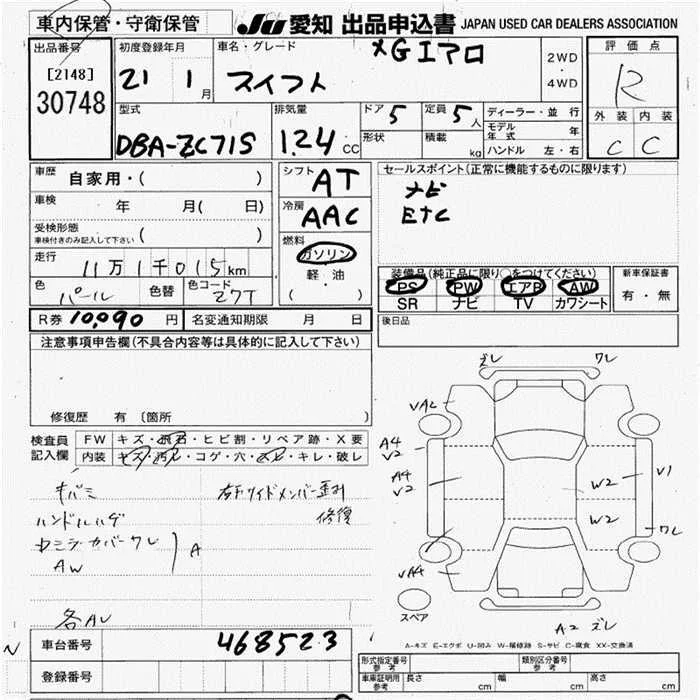 車内保管・守衛保管
JU 愛知 出品申込書 JAPAN USED CAR DEALERS ASSOCIATION
出品番号
[2148]
30748
初度登録年月
21 1月
車名・グレード
スイフト
XGエアロ
2WD
・
4WD
評価点
R
外装 内装
C C
型式
DBA-ZC71S
排気量
1.24 CC
ドア 5
定員 5人
形状
積載 kg
ディーラー・並行
モデル年式 年
ハンドル 左・右
車歴 自家用・( )
車検 年 月( 日)
受検形態
車検付きのみ記入して下さい ( )
走行 11万1千015km
色 パール
色替
色コード Z7T
シフト AT
冷房 AAC
燃料
ガソリン
軽・油
( )
セールスポイント(正常に機能するものに限ります)
ナビ
ETC
装備品(純正品に限り○をつけてください)
PS PW エアB AW
SR ナビ TV カワシート
新車保証書
有・無
R券 10,090 円
名変通知期限 月 日
後日品
注意事項申告欄(不具合内容等は具体的に記入して下さい)
修復歴 有 〔箇所 〕
検査員記入欄
FW キズ・飛石・ヒビ割・リペア跡・X要
内装 キズ・汚レ・コゲ・穴・スレ・キレ・破レ
キバミ
ハンドルハゲ
カバーワレ
AW
A
各AU
右フサイドメンバー歪み
修復
ズレ
ワレ
VA2
A4
V2
A4
V2
VA4
W2
W2
V1
ワレ
A2 ズレ
スペア
A-キズ E-エクボ U-凹み W-補修跡 S-サビ C-腐食 XX-交換済
N
車台番号 468523
登録番号
形式指定番号 参考
類別区分番号 参考
車庫証明用 参考 長さ cm 幅 cm 高さ cm